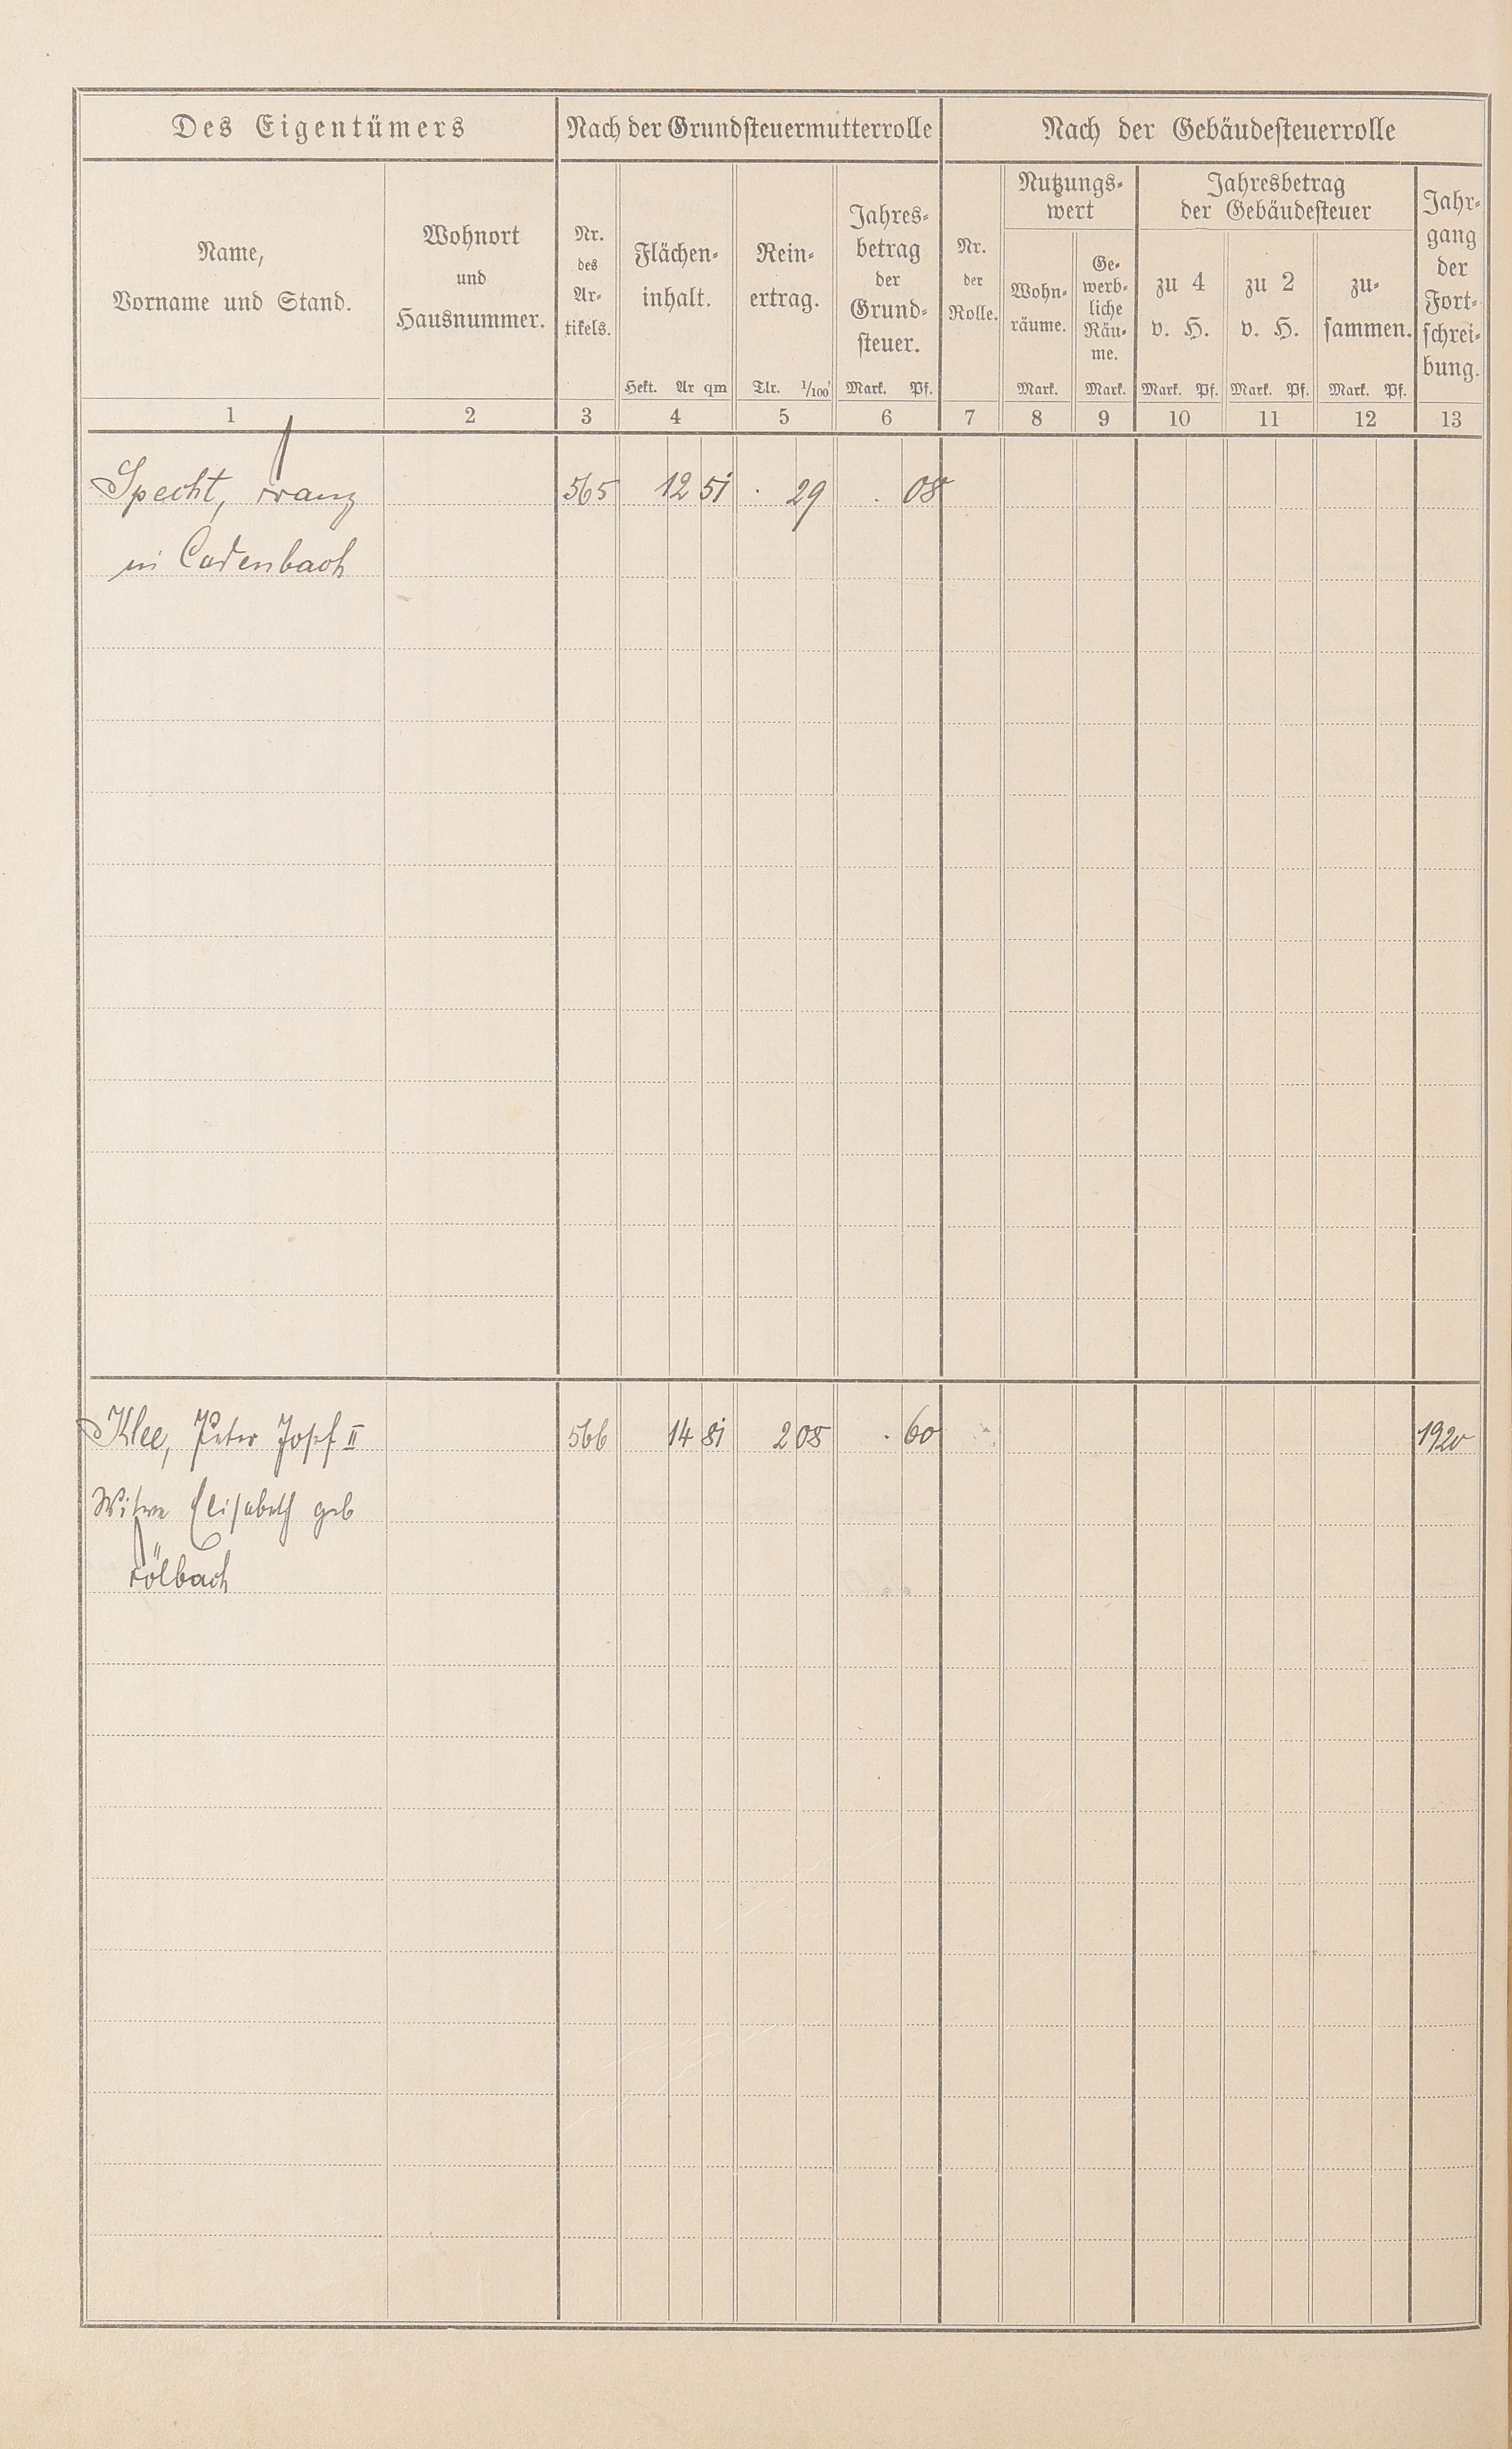 Des Eigentümers Nach der Grundsteuermutterrolle Nach der Gebäudesteuerrolle
Name,
Vorname und Stand.
Wohnort
und
Hausnummer.
Nr.
des
Ar-
tikels.
Flächen-
inhalt.
Hekt. Ar qm
Rein-
ertrag.
Tlr. 1/100
Jahres-
betrag
der
Grund-
steuer.
Mark. Pf.
Nr.
der
Rolle.
Nutzungs-
wert
Wohn-
räume.
Mark.
Ge-
werb-
liche
Räu-
me.
Mark.
Jahresbetrag
der Gebäudesteuer
zu 4
v. H.
Mark. Pf.
zu 2
v. H.
Mark. Pf.
zu-
sammen.
Mark. Pf.
Jahr-
gang
der
Fort-
schrei-
bung.
1 2 3 4 5 6 7 8 9 10 11 12 13
Specht, Franz 565 12 51 . 29 . 08
in Cadenbach
Klee, Peter Josef II 566 14 81 2 08 . 60 1920
Witwe Elisabeth geb
Fölbach